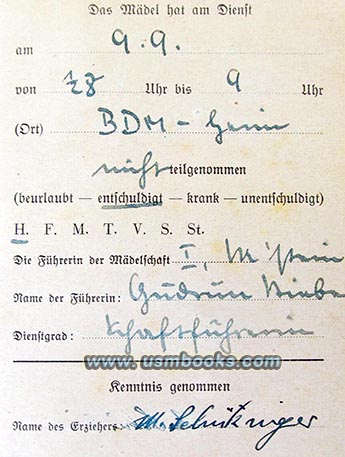 Das Mädel hat am Dienst
am 9.9.
von ½8 Uhr bis 9 Uhr
(Ort) BDM – Heim
nicht teilgenommen
(beurlaubt — entschuldigt — krank — unentschuldigt)
H. F. M. T. V. S. St.
Die Führerin der Mädelschaft I,
Name der Führerin: Gudrun
Dienstgrad: Schaftführerin
www.usmbooks.com
Kenntnis genommen
Name des Erziehers: M.